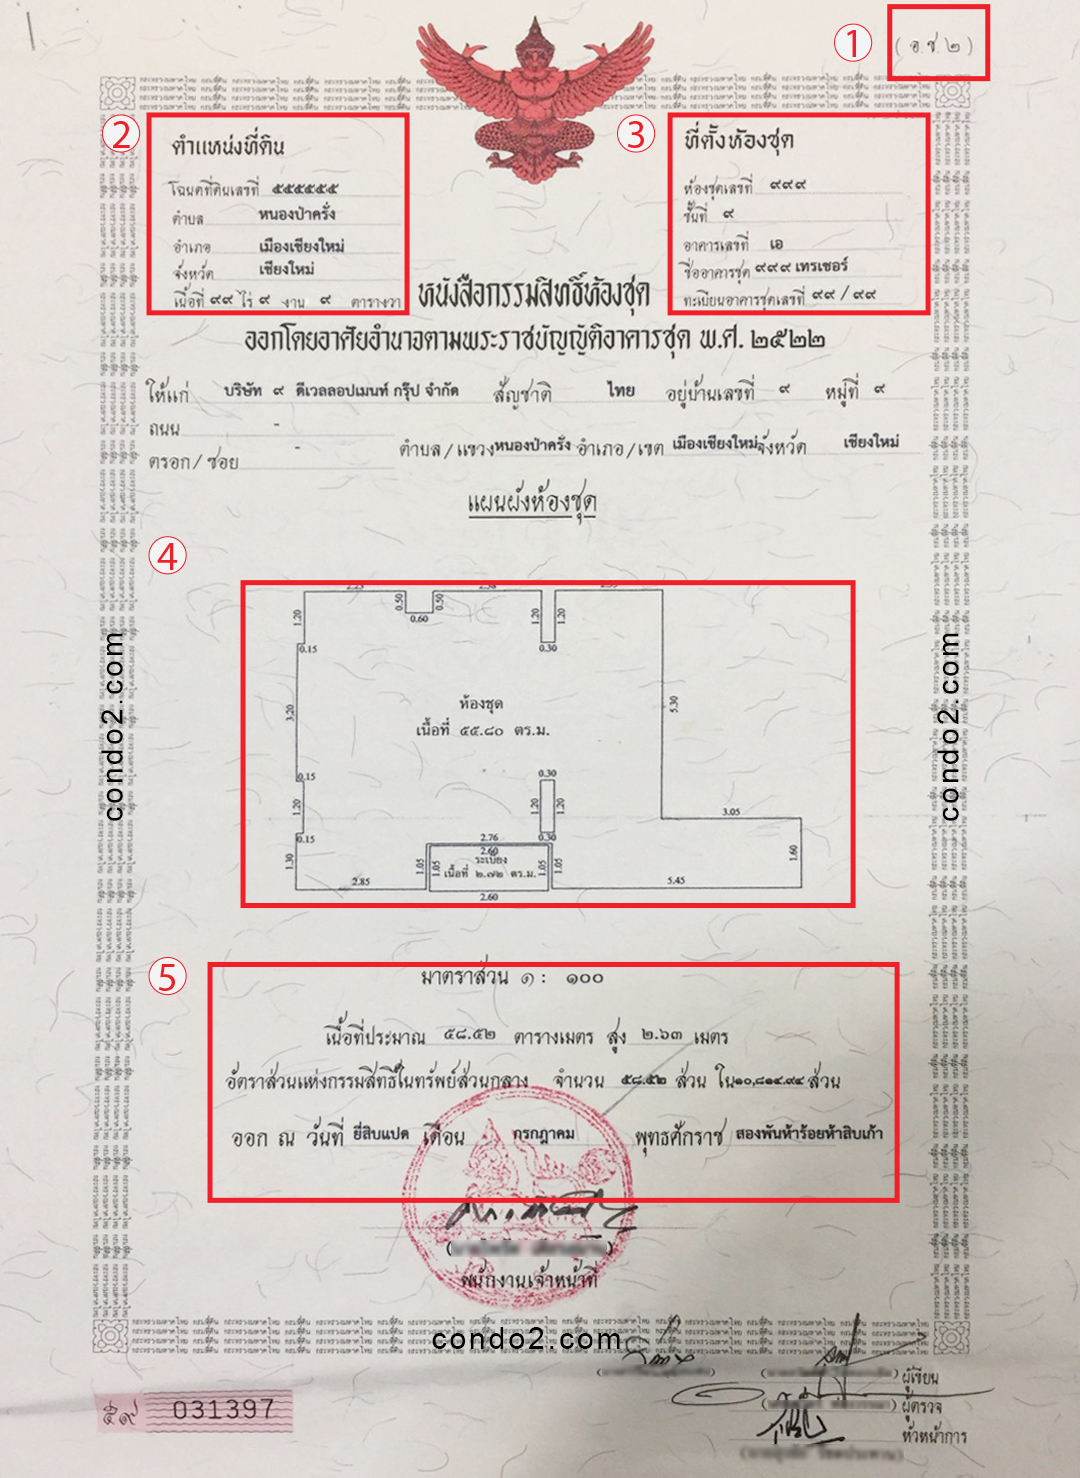 ① ( อ.ช.๒ )
② ตำแหน่งที่ดิน
โฉนดที่ดินเลขที่ ๕๕๕๕๕๕
ตำบล หนองป่าครั่ง
อำเภอ เมืองเชียงใหม่
จังหวัด เชียงใหม่
เนื้อที่ ๙๙ ไร่ ๙ งาน ๙ ตารางวา
③ ที่ตั้งห้องชุด
ห้องชุดเลขที่ ๙๙๙
ชั้นที่ ๙
อาคารเลขที่ เอ
ชื่ออาคารชุด ๙๙๙ เทรเชอร์
ทะเบียนอาคารชุดเลขที่ ๙๙ / ๙๙
หนังสือกรรมสิทธิ์ห้องชุด
ออกโดยอาศัยอำนาจตามพระราชบัญญัติอาคารชุด พ.ศ. ๒๕๒๒
ให้แก่ บริษัท ๙ ดีเวลลอปเมนท์ กรุ๊ป จำกัด สัญชาติ ไทย อยู่บ้านเลขที่ ๙ หมู่ที่ ๙
ถนน -
ตรอก/ซอย - ตำบล/แขวง หนองป่าครั่ง อำเภอ/เขต เมืองเชียงใหม่ จังหวัด เชียงใหม่
แผนผังห้องชุด
④
1.20 0.50 0.50 1.20 1.20
0.60
0.15 0.30
3.20 ห้องชุด 5.30
เนื้อที่ ๕๕.๘๐ ตร.ม.
0.15 0.30
1.20 1.20 1.20 3.05
0.15 2.76 0.30
1.30 2.60 1.60
1.05 1.05 ระเบียง 1.05 1.05
2.85 เนื้อที่ ๒.๗๒ ตร.ม. 5.45
2.60
condo2.com
condo2.com
⑤ มาตราส่วน ๑ : ๑๐๐
เนื้อที่ประมาณ ๕๘.๕๒ ตารางเมตร สูง ๒.๖๓ เมตร
อัตราส่วนแห่งกรรมสิทธิ์ในทรัพย์ส่วนกลาง จำนวน ๕๘.๕๒ ส่วน ใน ๑๐,๘๑๔.๙๔ ส่วน
ออก ณ วันที่ ยี่สิบแปด เดือน กรกฎาคม พุทธศักราช สองพันห้าร้อยห้าสิบเก้า
พนักงานเจ้าหน้าที่
condo2.com
ผู้เขียน
ผู้ตรวจ
หัวหน้าการ
๕๙ 031397